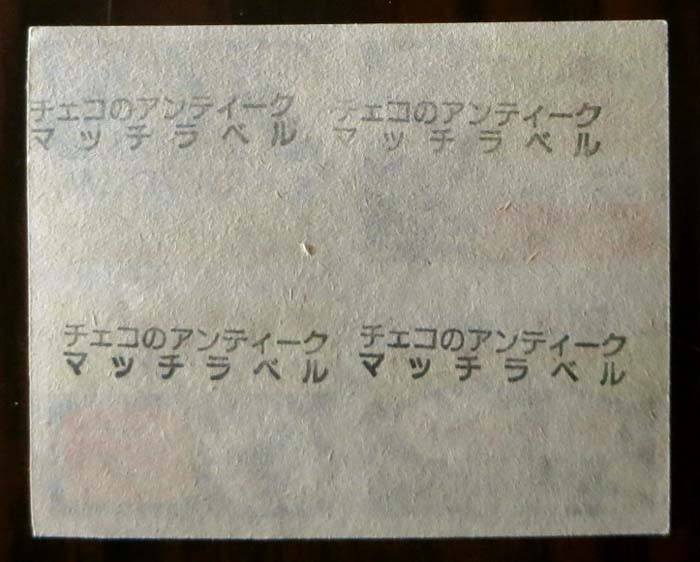 チェコのアンティーク チェコのアンティーク
マッチラベル マッチラベル
チェコのアンティーク チェコのアンティーク
マッチラベル マッチラベル